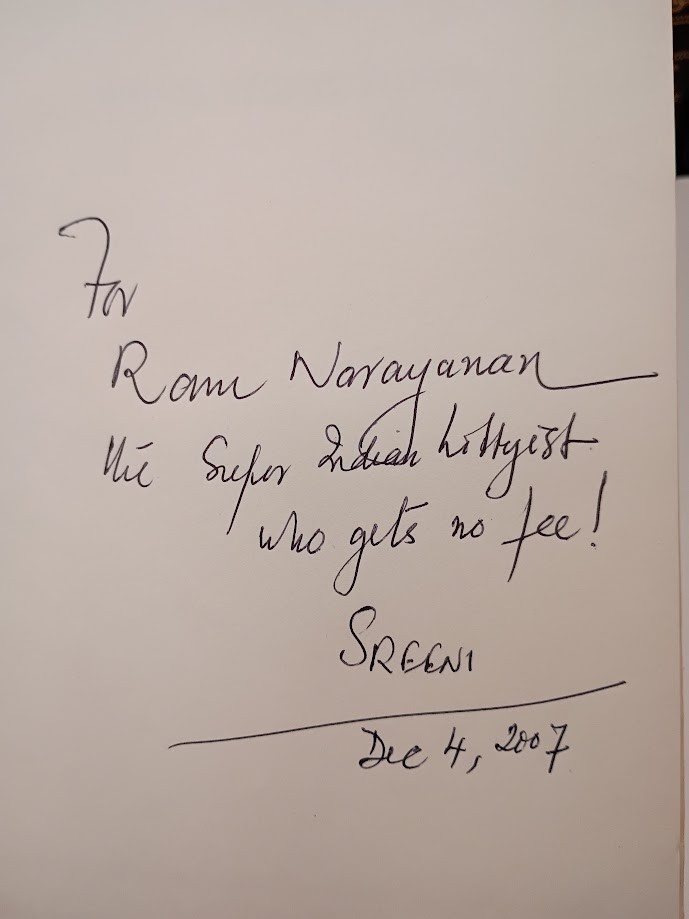 For
Ram Narayanan
the Super Indian lobbyist
who gets no fee!
SREENI
Dec 4, 2007